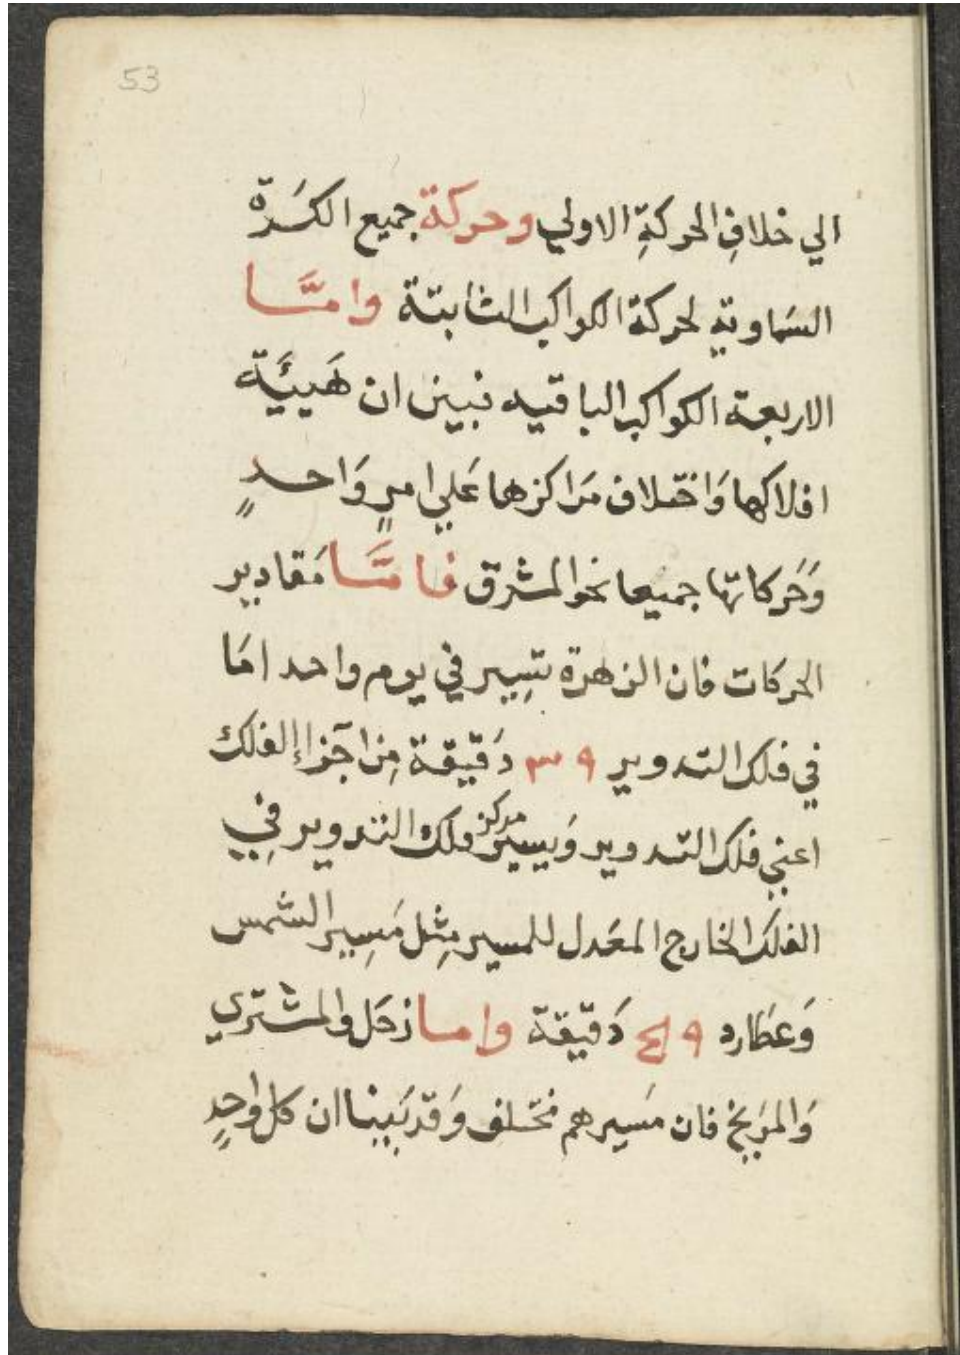 53
الي خلافِ الحركةِ الاولي وحركة جميع الكَرة
السَماوية لحركة الكواكب الثابتة وامَّا
الاربعة الكواكب الباقيه فبين ان هَيئَة
افلاكها وَاختلاف مَراكزها عَلي امرٍ وَاحدٍ
وَحَركاتها جميعا نحو المشرق فامَّا مَقادير
الحركات فان الزهرة تسِير في يوم واحد امَا
في فلك التدوير ٣٩ دَقيقة مِن اجزاء الفلك
اعني فلك التدوير وَيسير مركز فلك التدوير فِي
الفلك الخارج المعَدل للمسير مِثل مَسِير الشمس
وَعطَارد دَقيقة واما زحَل والمشتري
وَالمرَيخ فان مَسَيرهم مختلف وَقد بَينا ان كل واحِدٍ